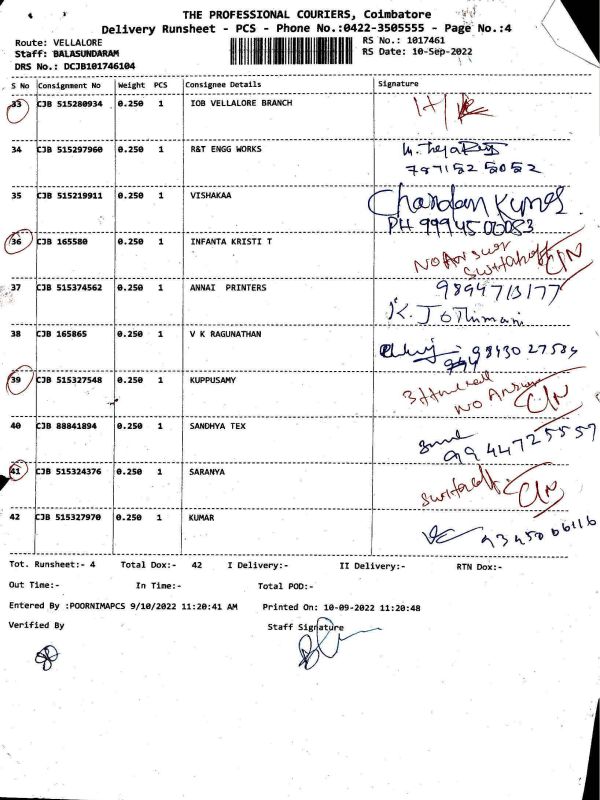 THE PROFESSIONAL COURIERS, Coimbatore
Delivery Runsheet - PCS - Phone No.:0422-3505555 - Page No.:4
Route: VELLALORE
RS No.: 1017461
Staff: BALASUNDARAM
RS Date: 10-Sep-2022
DRS No.: DCJB101746104
S No Consignment No Weight PCS Consignee Details Signature
33 CJB 515280934 0.250 1 IOB VELLALORE BRANCH
34 CJB 515297960 0.250 1 R&T ENGG WORKS
35 CJB 515219911 0.250 1 VISHAKAA Chandan Kumar
PH 9994500083
36 CJB 165580 0.250 1 INFANTA KRISTI T NO Answer
37 CJB 515374562 0.250 1 ANNAI PRINTERS 9894713177
K. Jothimani
38 CJB 165865 0.250 1 V K RAGUNATHAN
39 CJB 515327548 0.250 1 KUPPUSAMY
NO Answer
40 CJB 88841894 0.250 1 SANDHYA TEX
9944725557
41 CJB 515324376 0.250 1 SARANYA
42 CJB 515327970 0.250 1 KUMAR
Tot. Runsheet:- 4 Total Dox:- 42 I Delivery:- II Delivery:- RTN Dox:-
Out Time:- In Time:- Total POD:-
Entered By :POORNIMAPCS 9/10/2022 11:20:41 AM Printed On: 10-09-2022 11:20:48
Verified By Staff Signature